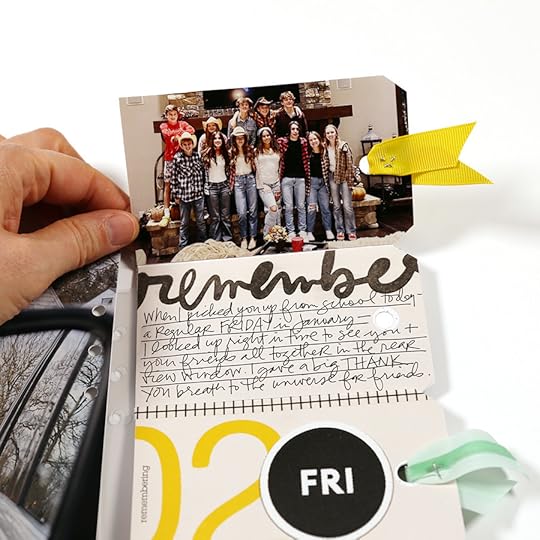 remember
When I picked you up from school today -
a Regular FRIDAY in January -
I looked up right in time to see you +
your friends all together in the rear
view window. I gave a big THANK
you breath to the universe for friends.
remembering
02
FRI